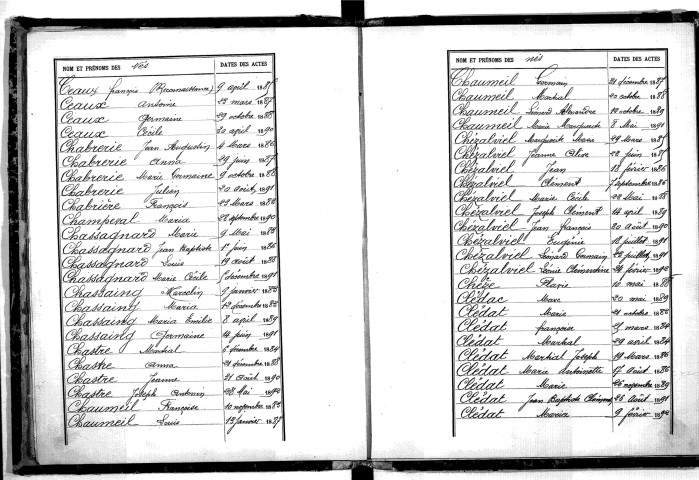 NOM ET PRÉNOMS DES nés DATES DES ACTES
Ceaux françois (Reconnaissance) 9 avril 188
Ceaux Antoine 23 mars 1887
Ceaux Germaine 29 octobre 1888
Ceaux Cécile 20 avril 1890
Chabrerie Jean Augustin 4 Mars 188
Chabrerie Anna 29 juin 1887
Chabrerie Marie Germaine 9 octobre 1888
Chabrerie Julien 20 août 1891
Chabrière François 23 Mars 188
Champeval Maria 28 septembre 1890
Chassagnard Marie 9 Mai 188
Chassagnard Jean Baptiste 1er juin 1886
Chassagnard Louis 19 août 1888
Chassagnard Marie Cécile décembre 1891
Chassaing Marcelin 9 janvier 188
Chassaing Maria 12 décembre 188
Chassaing Maria Emilie 8 avril 1889
Chassaing Germaine 14 juin 1891
Chastre Martial 6 décembre 1884
Chastre Anna 21 décembre 1888
Chastre Jeanne 21 août 1890
Chastre Joseph Antonin 28 Mai 1892
Chaumeil Françoise 10 novembre 188
Chaumeil Louis 13 janvier 188
NOM ET PRÉNOMS DES nés DATES DES ACTES
Chaumeil Germain 21 décembre 1887
Chaumeil Martial 20 octobre 1888
Chaumeil Léonard Alexandre 10 octobre 1889
Chaumeil Marie Marguerite 8 Mai 1891
Chézalviel Marguerite Marie 29 Mars 188
Chézalviel Jeanne 22 juin 188
Chézalviel Jean 18 février 1886
Chézalviel Clément 7 septembre 1886
Chézalviel Marie Cécile 28 Mai 1888
Chézalviel Joseph Clément 14 avril 1889
Chézalviel Jean françois 20 août 1890
Chézalviel Eugénie 18 juillet 1891
Chézalviel Léonard Germain 28 juillet 1891
Chézalviel Léonie Clémentine 24 février 1892
Chèze Marie 10 mai 1888
Clédac Marc 20 mai 1889
Clédat Marie 21 octobre 188
Clédat françoise 21 mars 1884
Clédat Martial 29 avril 1884
Clédat Martial Joseph 19 Mars 1886
Clédat Marie Antoinette 17 août 1886
Clédat Marie 26 novembre 1889
Clédat Jean Baptiste Clément 26 Août 1891
Clédat Maria 9 février 1892